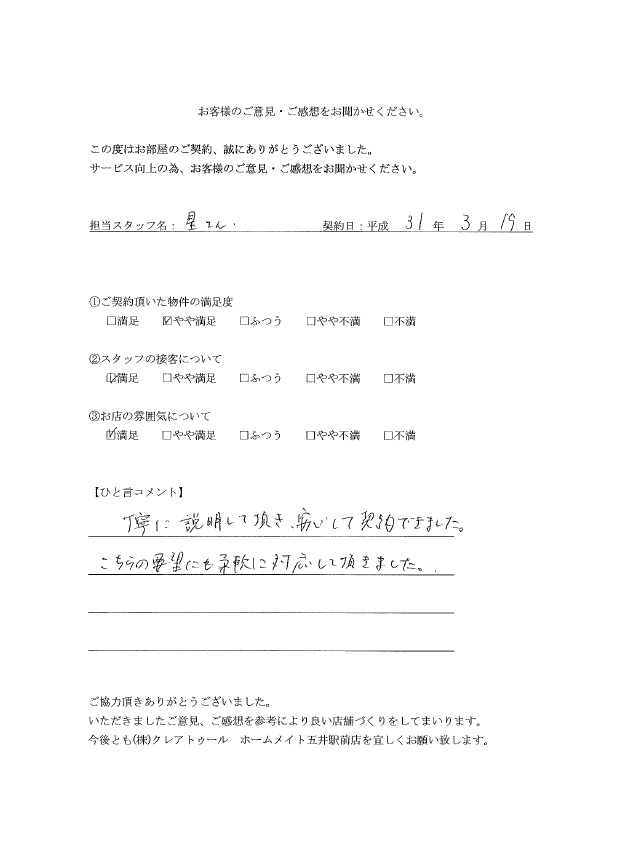 お客様のご意見・ご感想をお聞かせください。
この度はお部屋のご契約、誠にありがとうございました。
サービス向上の為、お客様のご意見・ご感想をお聞かせください。
担当スタッフ名： 星さん. 契約日：平成 31 年 3 月 19 日
①ご契約頂いた物件の満足度
□満足 ☑やや満足 □ふつう □やや不満 □不満
②スタッフの接客について
☑満足 □やや満足 □ふつう □やや不満 □不満
③お店の雰囲気について
☑満足 □やや満足 □ふつう □やや不満 □不満
【ひと言コメント】
丁寧に説明して頂き、安心して契約できました。
こちらの要望にも柔軟に対応して頂きました。
ご協力頂きありがとうございました。
いただきましたご意見、ご感想を参考により良い店舗づくりをしてまいります。
今後とも(株)クレアトゥール　ホームメイト五井駅前店を宜しくお願い致します。